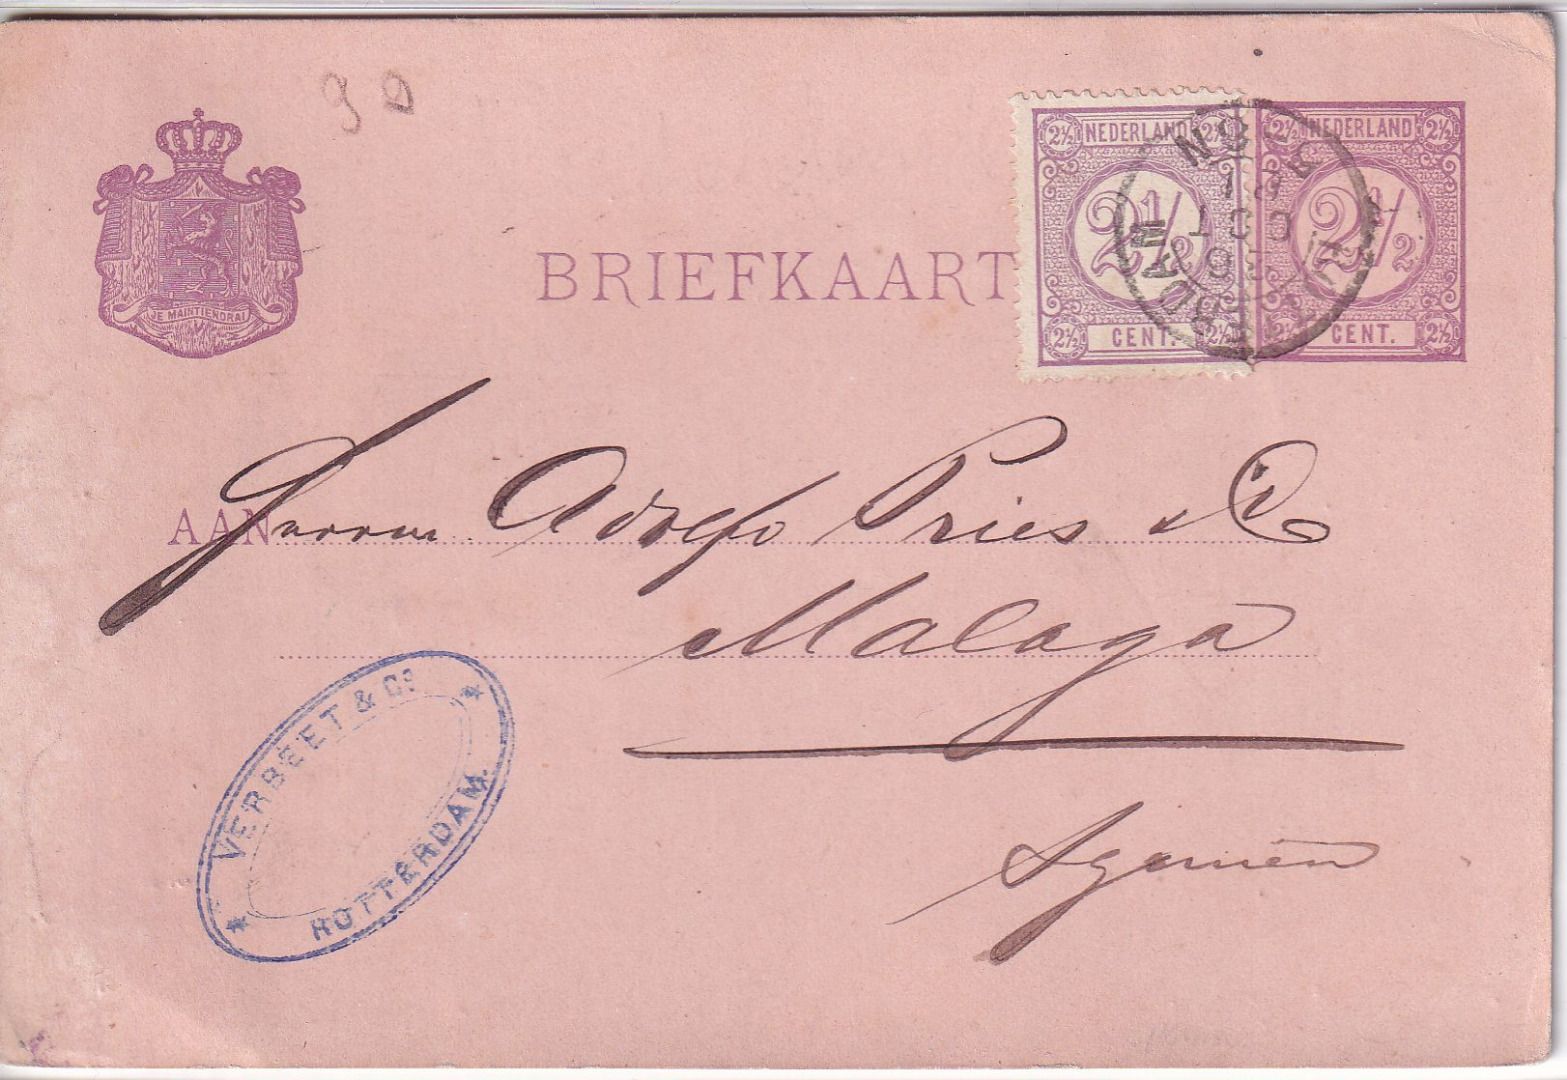 90
JE MAINTIENDRAI
BRIEFKAART
2½ NEDERLAND 2½
2½
2½ CENT. 2½
2½ NEDERLAND 2½
2½
2½ CENT. 2½
AAN Herren Adolfo Pries & Co
Malaga
Spanien
VERBEET & Co.
ROTTERDAM.